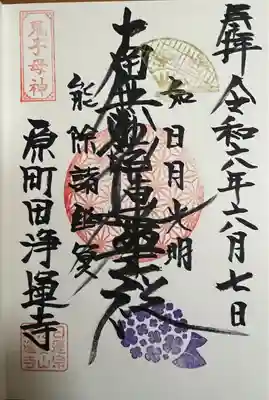 奉拝 令和六年六月七日
如日月光明
南無妙法蓮華経
能除諸幽冥
鬼子母神
原町田浄運寺